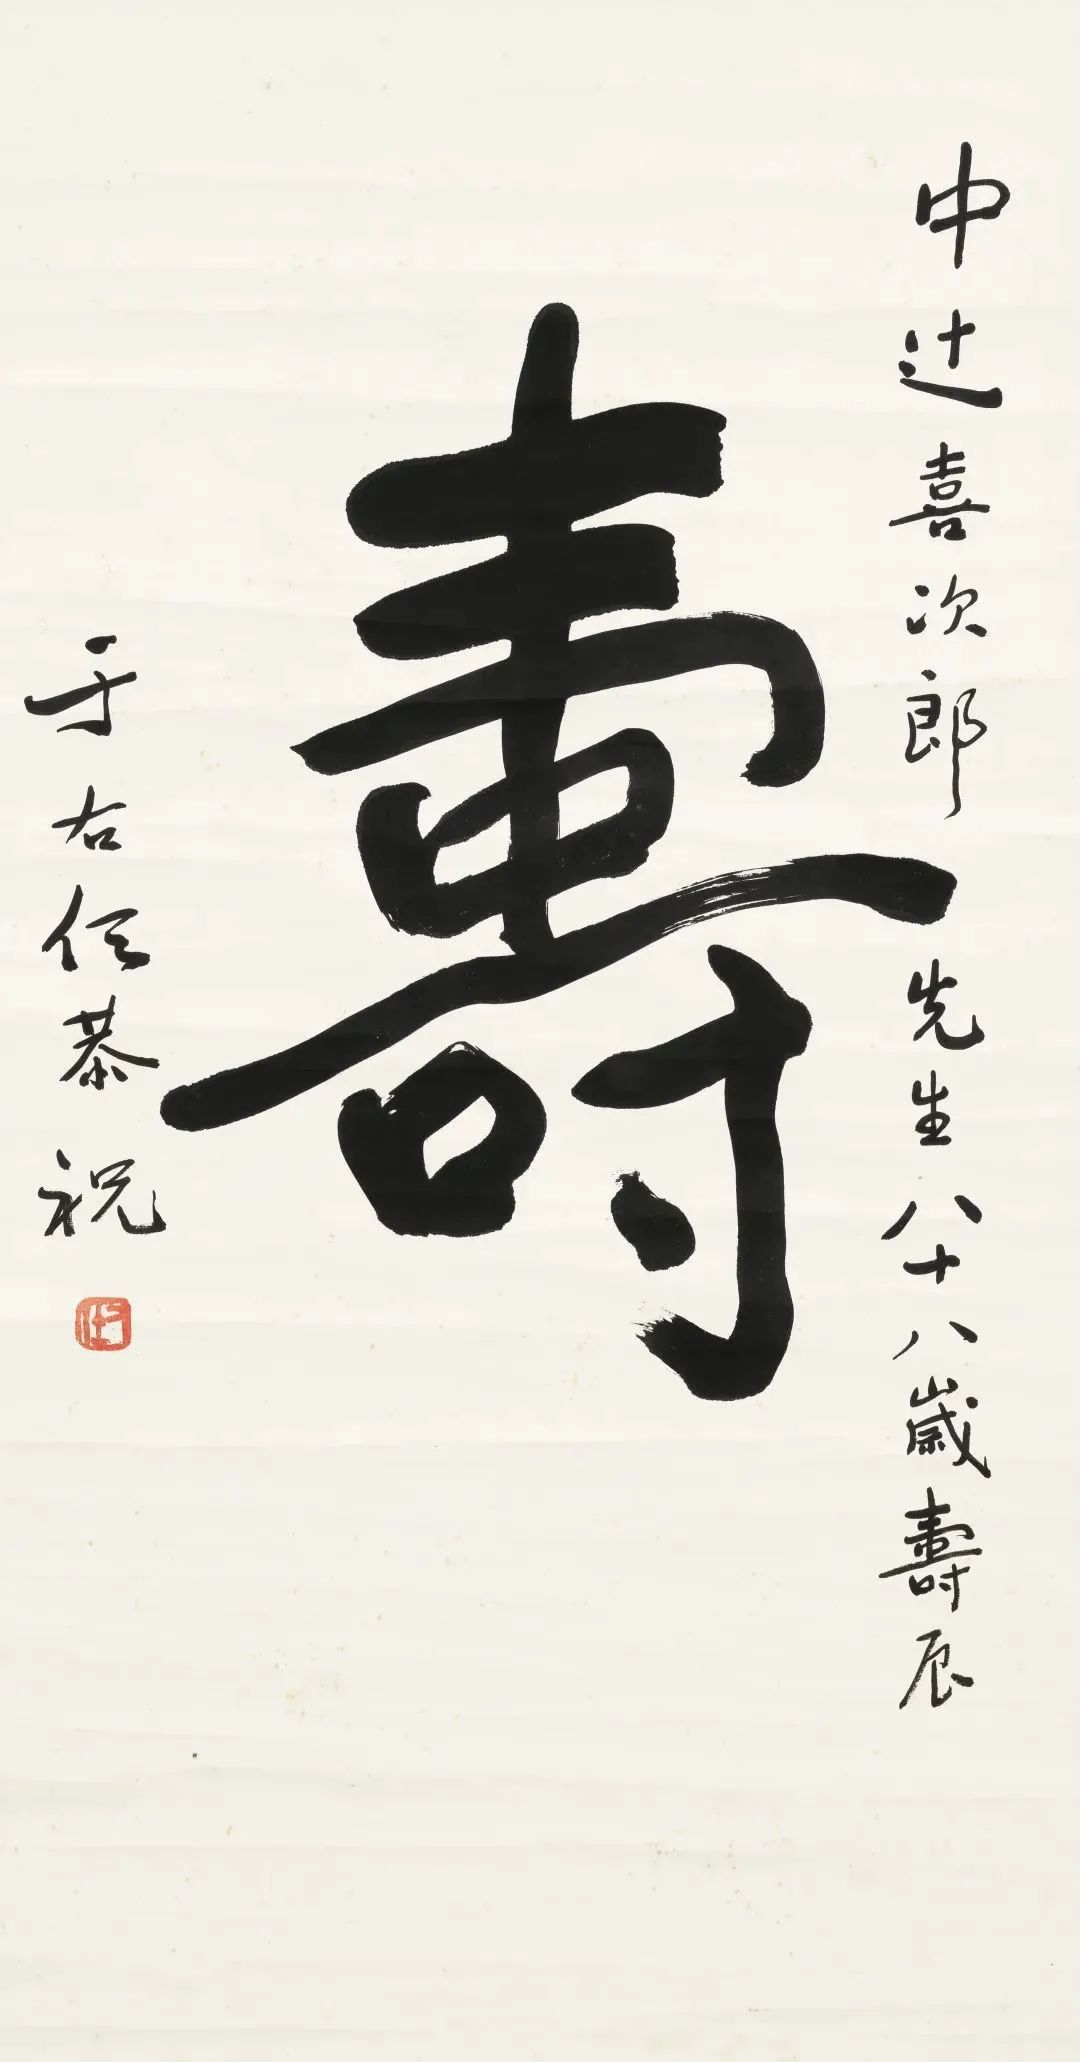 中辻喜次郎先生八十八歲壽辰
壽
于右任恭祝